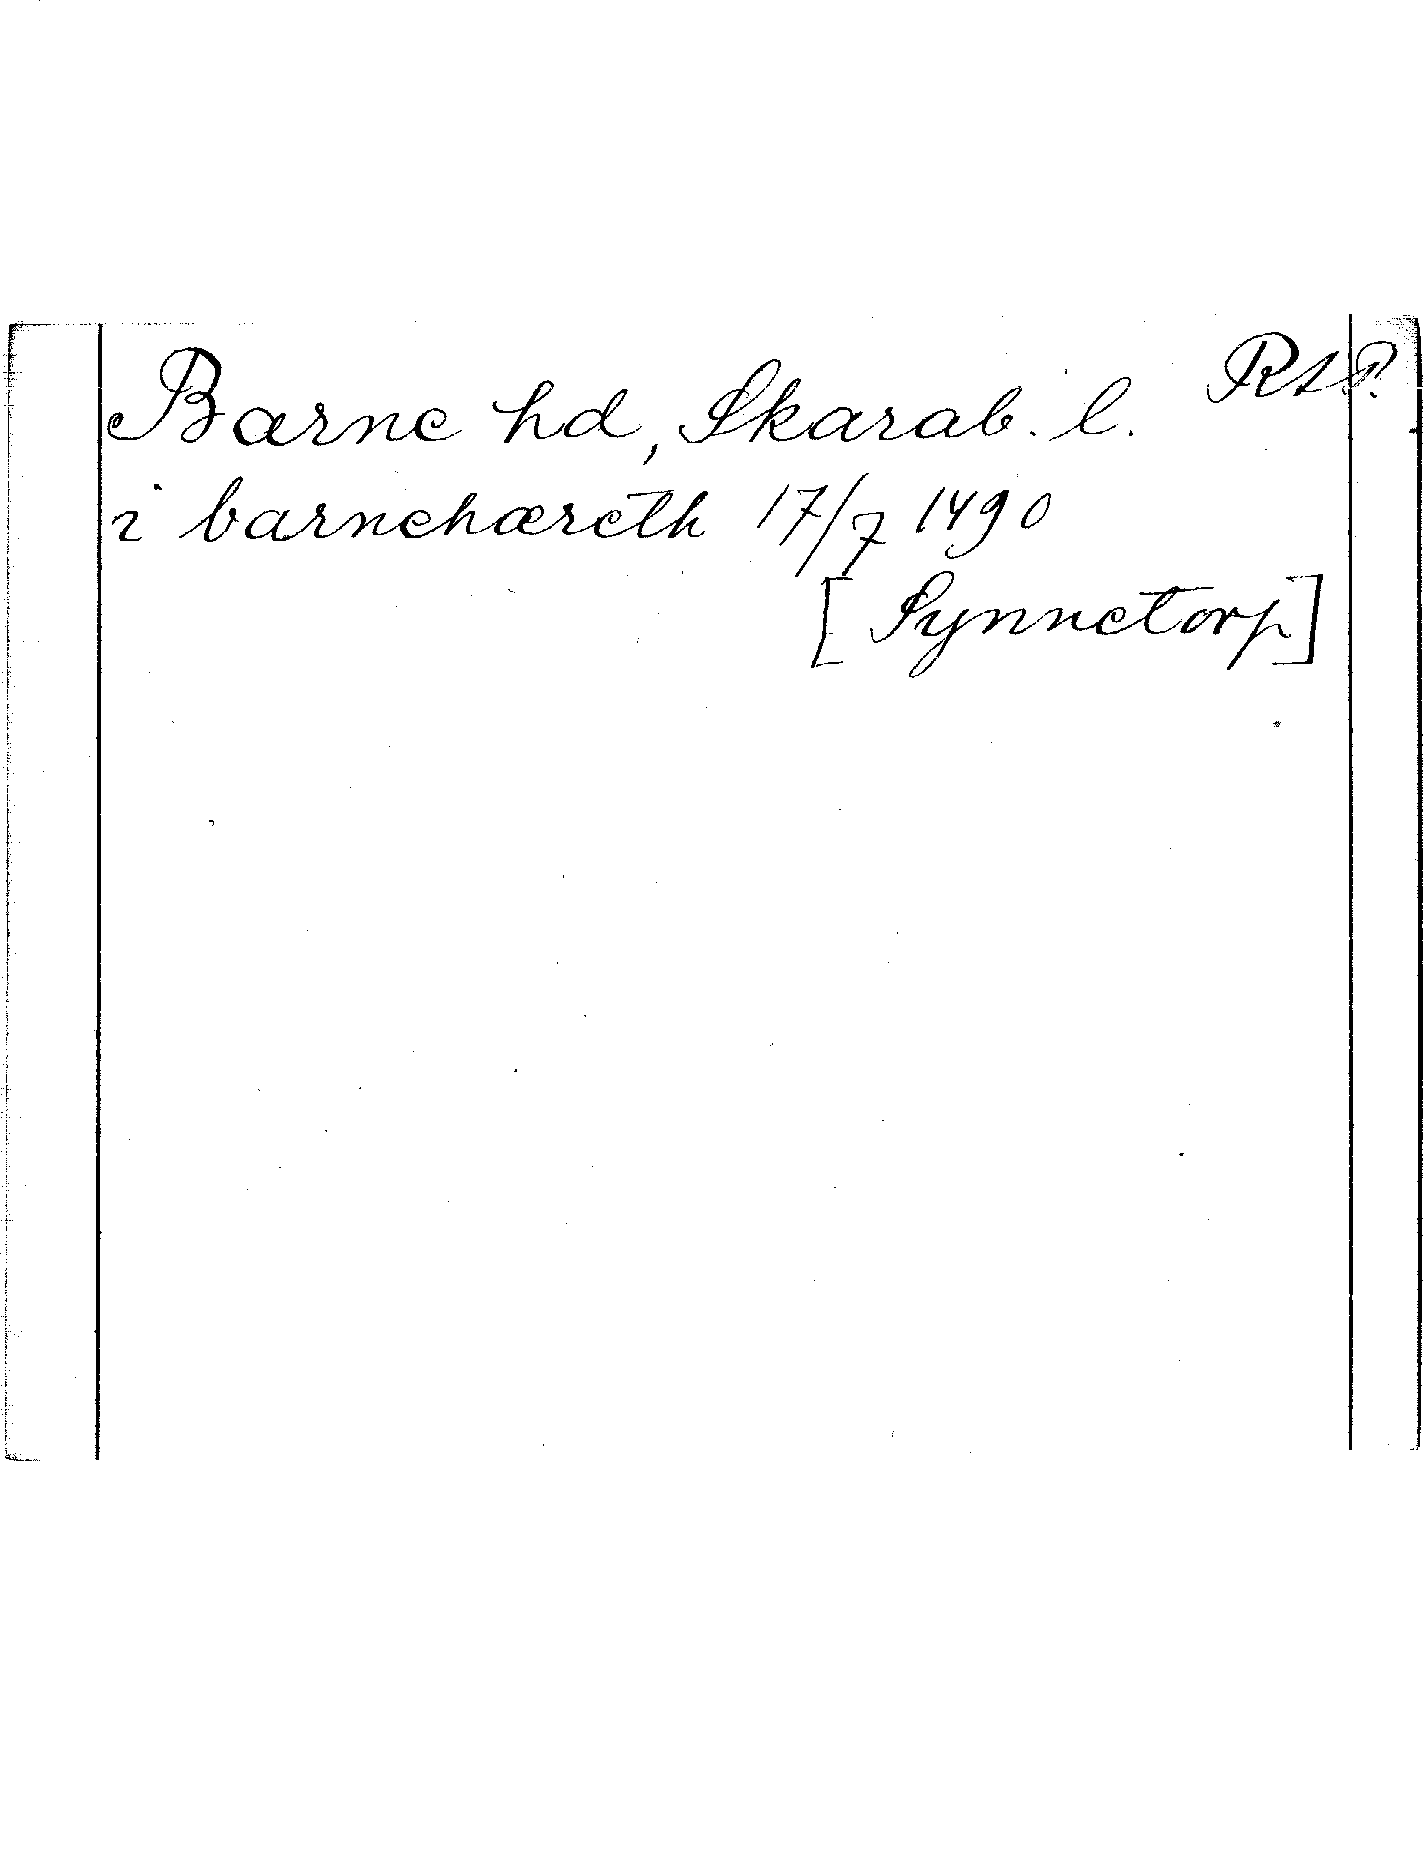 Barne hd, Skarab. l. RAP.
i barnehæreth 17/7 1490
[Synnetorp]